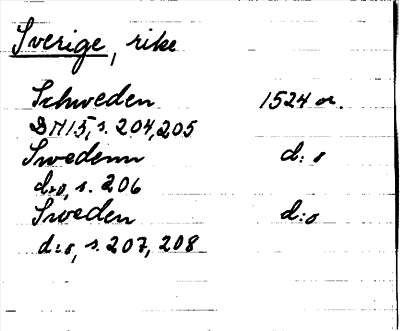 Sverige, rike
Schweden 1524 or.
DN15, s. 204, 205
Swedenn d:o
d:o, s. 206
Sweden d:o
d:o, s. 207, 208